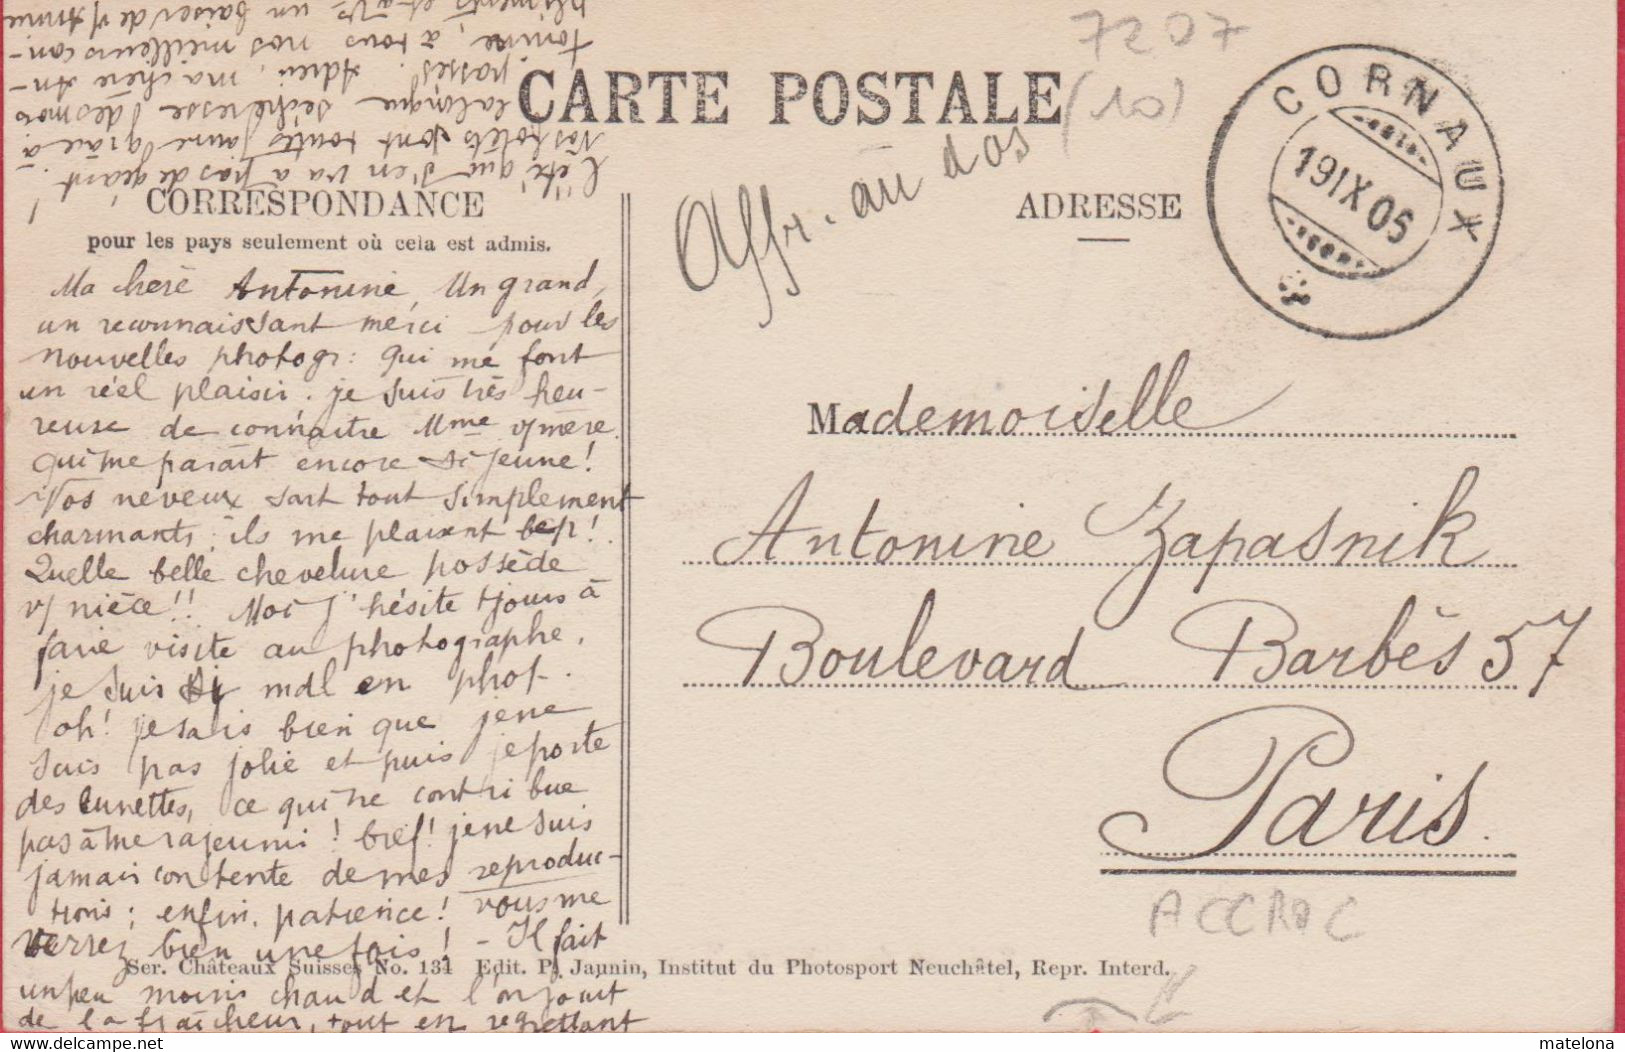 7207
(10)
CARTE POSTALE
CORNAUX
19 IX 05
Affr. au dos
CORRESPONDANCE
pour les pays seulement où cela est admis.
ADRESSE
Ma chère Antonine, Un grand,
un reconnaissant merci pour les
nouvelles photogr: qui me font
un réel plaisir. je suis très heu-
reuse de connaître Mme v/mère
qui me paraît encore si jeune!
Vos neveux sont tout simplement
charmants; ils me plaisent bcp!
Quelle belle chevelure possède
v/ nièce!! Moi j'hésite tjours à
faire visite au photographe,
je suis si mal en phot.
oh! je sais bien que je ne
suis pas jolie et puis je porte
des lunettes, ce qui ne contribue
pas à me rajeunir! bref! je ne suis
jamais contente de mes reproduc-
tions; enfin, patience! vous me
verrez bien une fois! - Il fait
un peu moins chaud et l'on jouit
de la fraîcheur, tout en regrettant
l'été qui s'en va à pas de géant!
Nos forêts sont toutes jaunes grâce à
la longue sécheresse des mois
passés. Adieu, ma chère An-
tonine, à tous nos meilleurs com-
pliments et à vs un baiser de v/
Mademoiselle
Antonine Zapasnik
Boulevard Barbès 57
Paris.
ACCROC
Ser. Châteaux Suisses No. 131 Edit. P. Jaunin, Institut du Photosport Neuchâtel, Repr. Interd.
https://www.delcampe.net
matelona